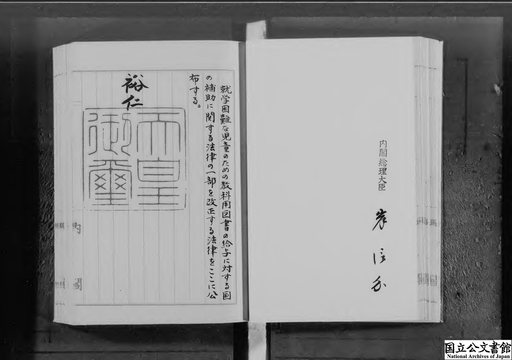 就学困難な児童のための教科用図書の給与に対する国
の補助に関する法律の一部を改正する法律をここに公
布する。
裕仁
天皇
御璽
内閣総理大臣
岸信介
国立公文書館
National Archives of Japan